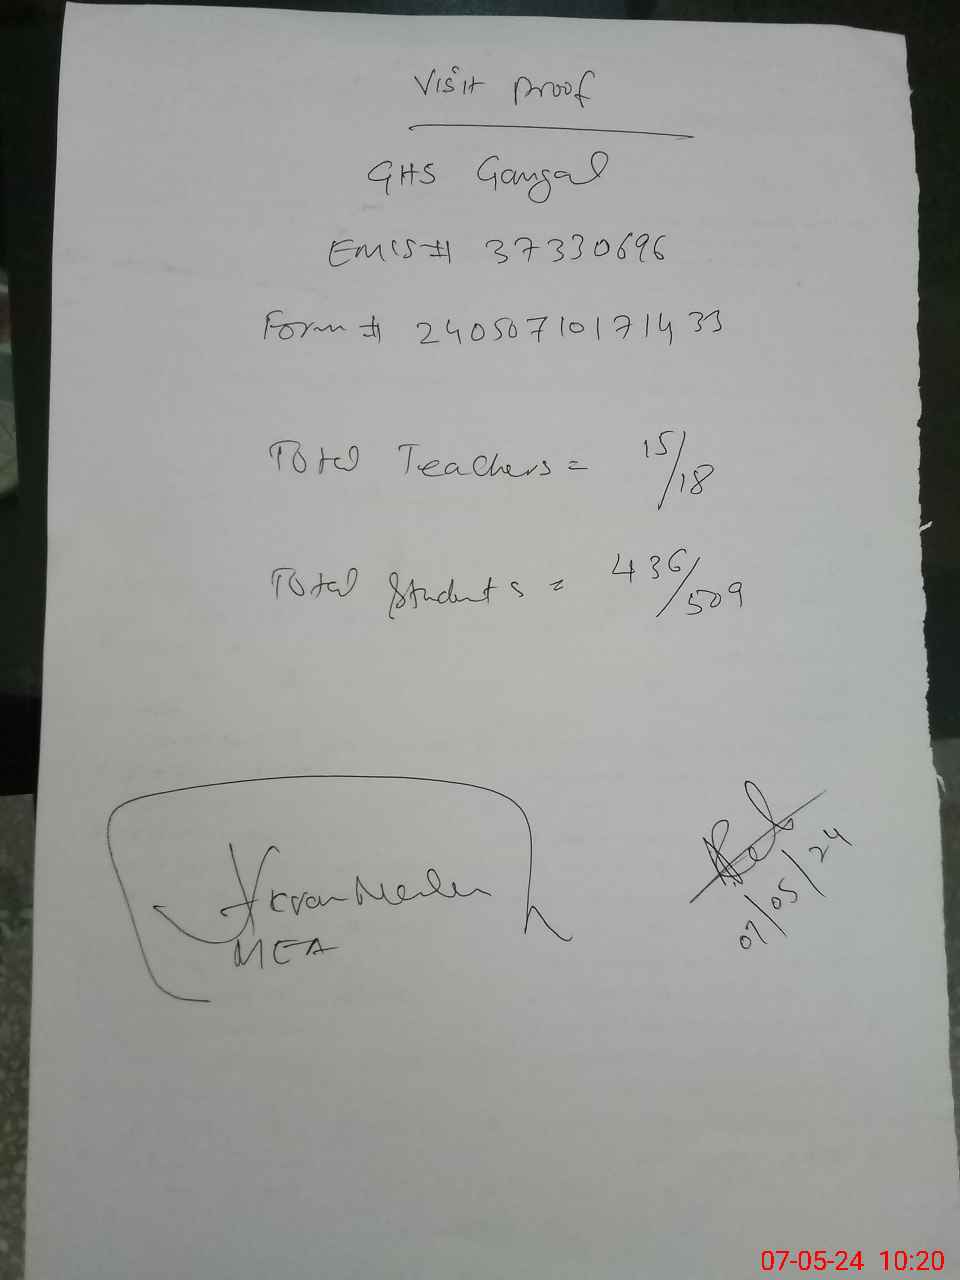 Visit Proof
GHS Gangal
EMIS# 37330696
Form # 24050710171433
Total Teachers = 15/18
Total Students = 436/509
MEA
07/05/24
07-05-24 10:20